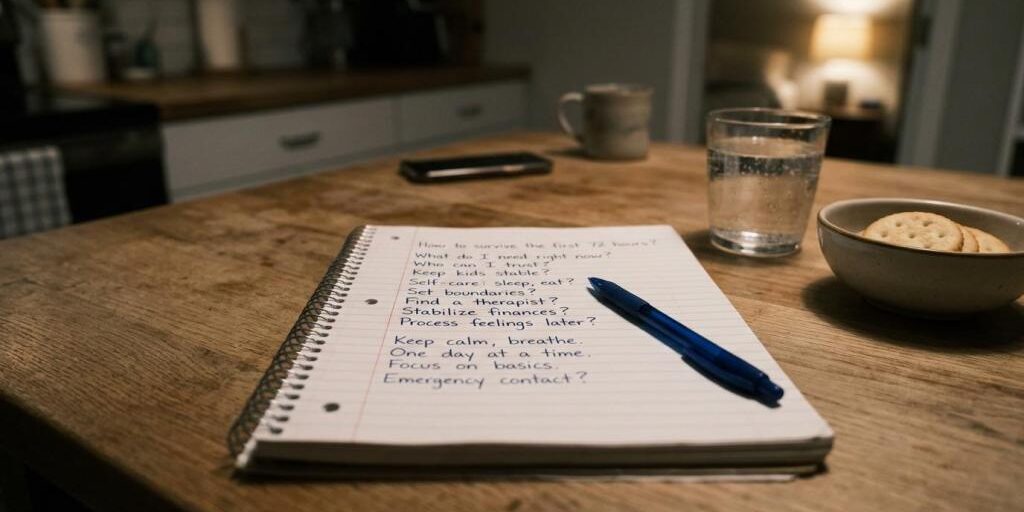 How to survive the first 72 hours?
What do I need right now?
Who can I trust?
Keep kids stable?
Self-care: sleep, eat?
Set boundaries?
Find a therapist?
Stabilize finances?
Process feelings later?
Keep calm, breathe.
One day at a time.
Focus on basics.
Emergency contact?